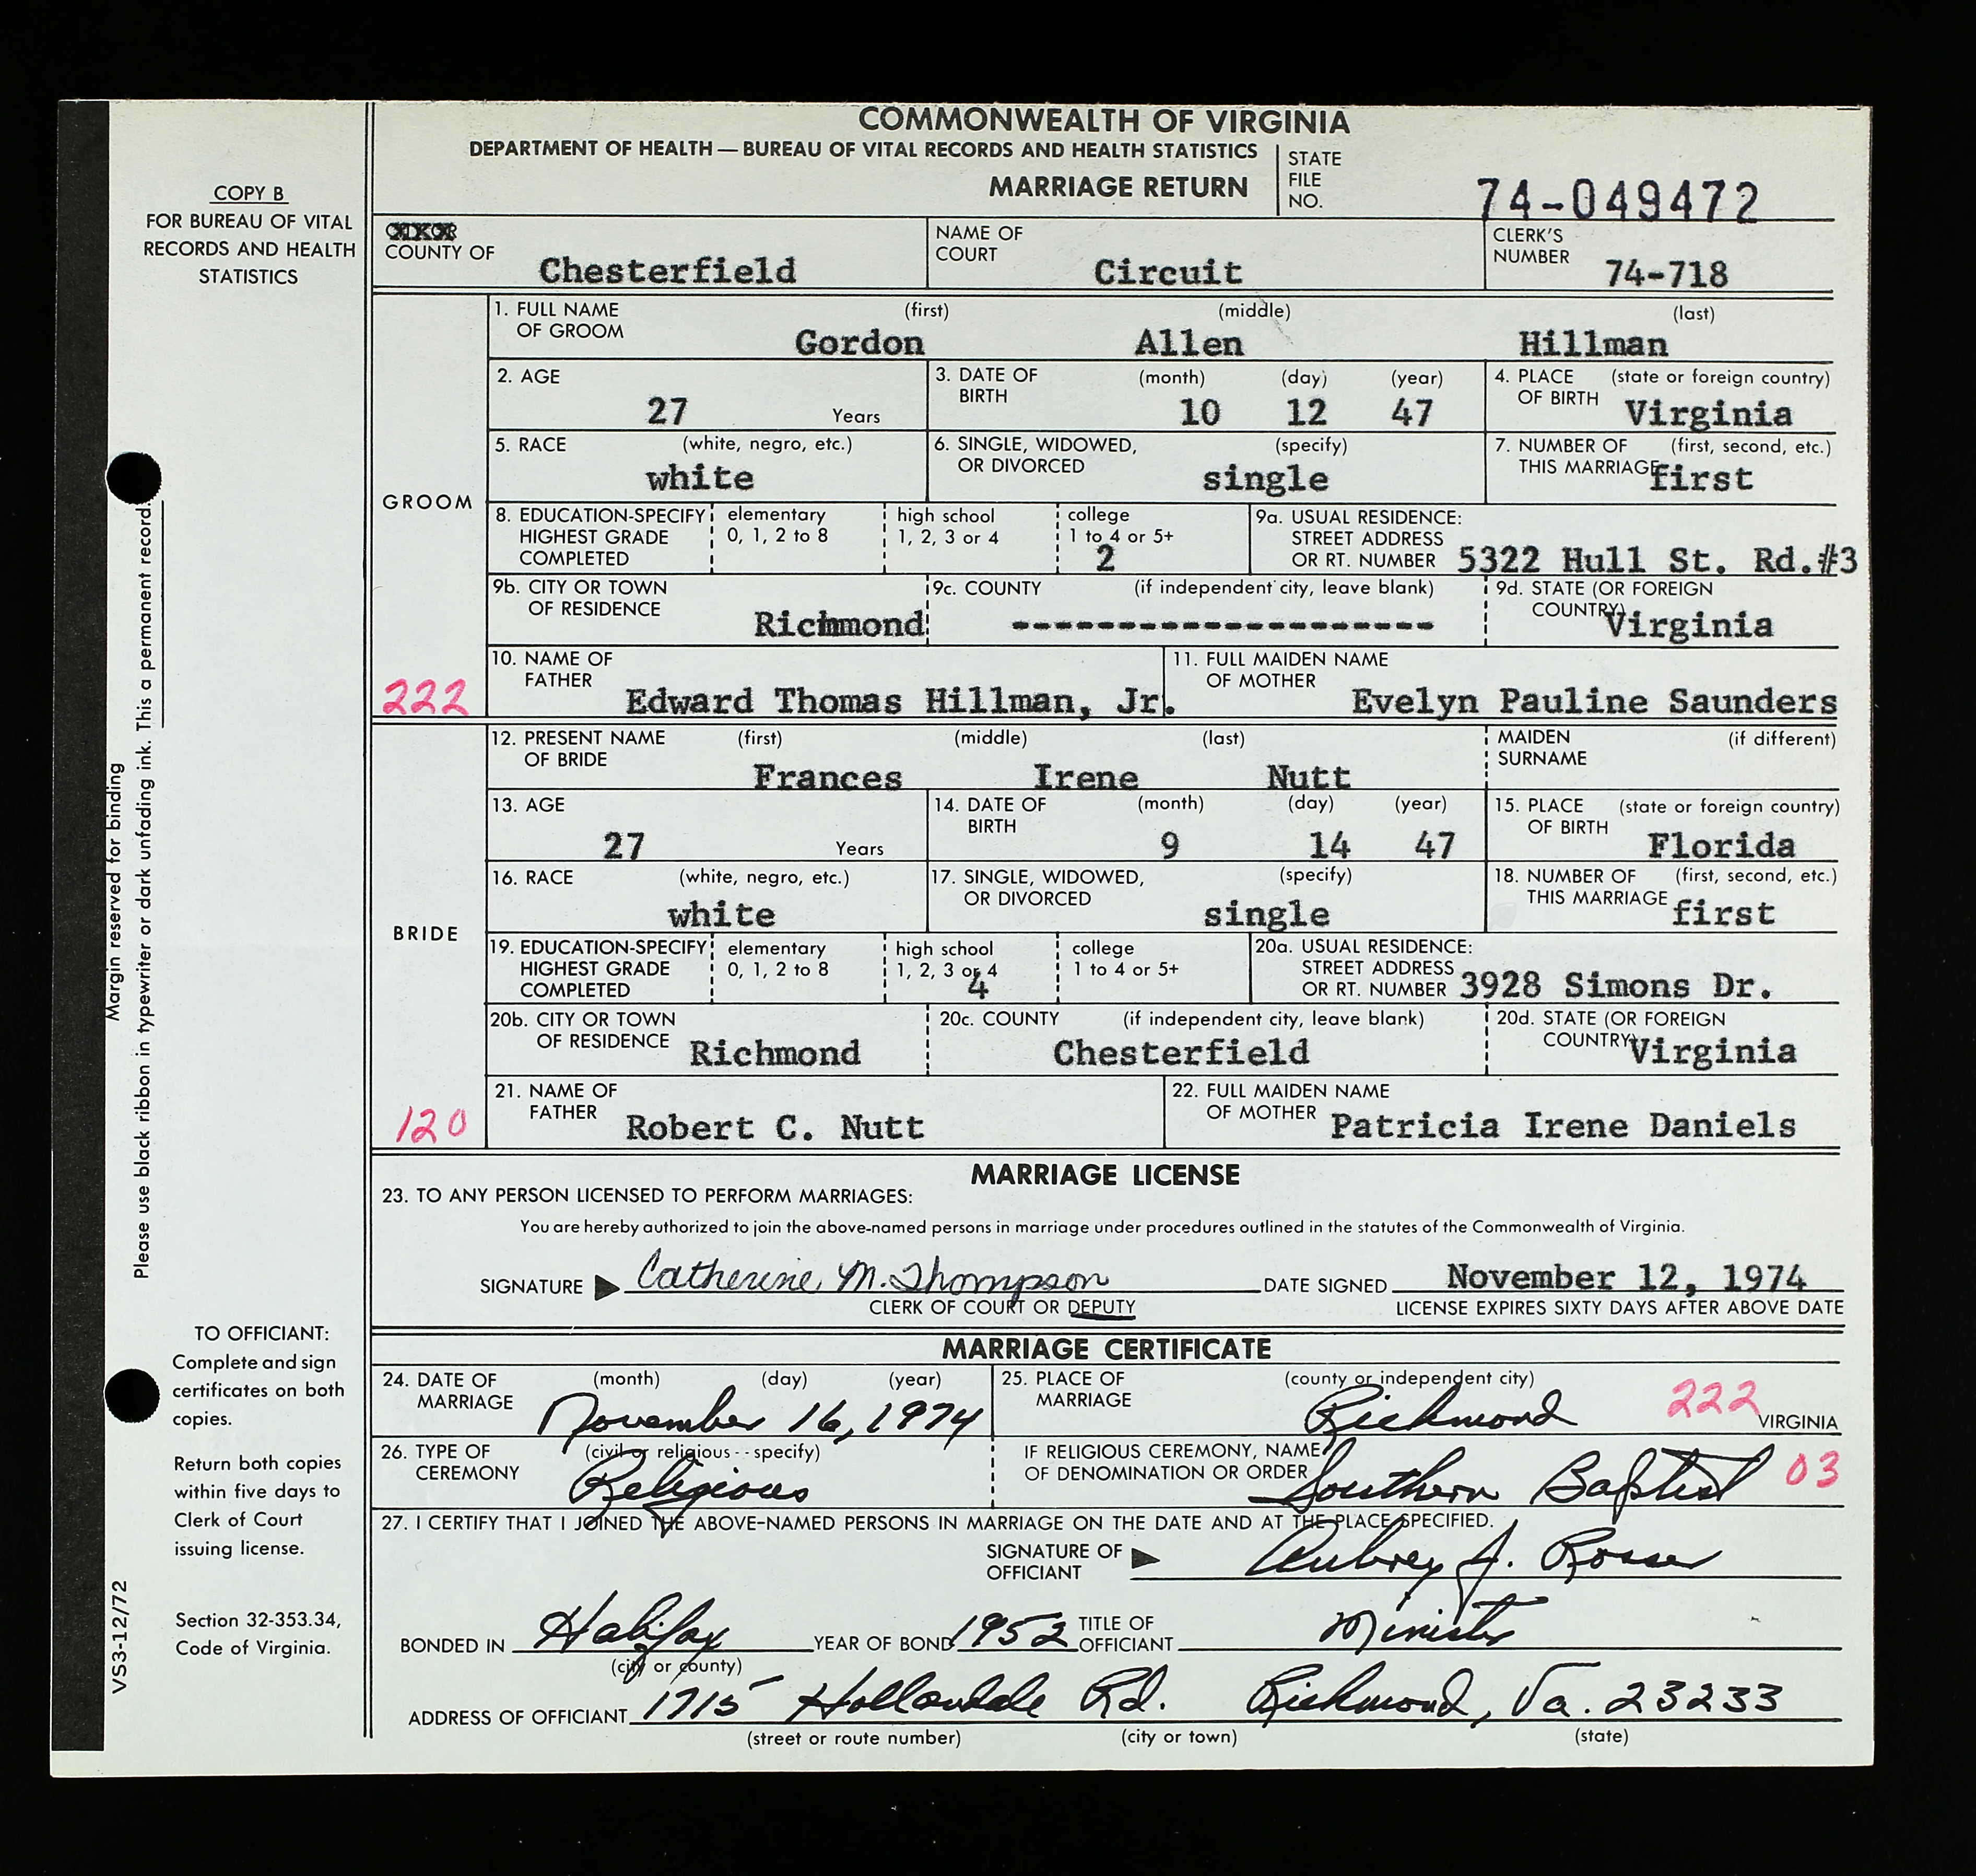 COMMONWEALTH OF VIRGINIA
DEPARTMENT OF HEALTH — BUREAU OF VITAL RECORDS AND HEALTH STATISTICS
MARRIAGE RETURN
STATE FILE NO. 74-049472
COPY B
FOR BUREAU OF VITAL
RECORDS AND HEALTH
STATISTICS
COUNTY OF Chesterfield
NAME OF COURT Circuit
CLERK'S NUMBER 74-718
GROOM
1. FULL NAME OF GROOM (first) (middle) (last)
Gordon Allen Hillman
2. AGE 27 Years
3. DATE OF BIRTH (month) (day) (year) 10 12 47
4. PLACE OF BIRTH (state or foreign country) Virginia
5. RACE (white, negro, etc.) white
6. SINGLE, WIDOWED, OR DIVORCED (specify) single
7. NUMBER OF THIS MARRIAGE (first, second, etc.) first
8. EDUCATION-SPECIFY HIGHEST GRADE COMPLETED
elementary 0, 1, 2 to 8
high school 1, 2, 3 or 4
college 1 to 4 or 5+ 2
9a. USUAL RESIDENCE: STREET ADDRESS OR RT. NUMBER 5322 Hull St. Rd.#3
9b. CITY OR TOWN OF RESIDENCE Richmond
9c. COUNTY (if independent city, leave blank) --------------------
9d. STATE (OR FOREIGN COUNTRY) Virginia
10. NAME OF FATHER Edward Thomas Hillman, Jr.
11. FULL MAIDEN NAME OF MOTHER Evelyn Pauline Saunders
222
BRIDE
12. PRESENT NAME OF BRIDE (first) (middle) (last)
Frances Irene Nutt
MAIDEN SURNAME (if different)
13. AGE 27 Years
14. DATE OF BIRTH (month) (day) (year) 9 14 47
15. PLACE OF BIRTH (state or foreign country) Florida
16. RACE (white, negro, etc.) white
17. SINGLE, WIDOWED, OR DIVORCED (specify) single
18. NUMBER OF THIS MARRIAGE (first, second, etc.) first
19. EDUCATION-SPECIFY HIGHEST GRADE COMPLETED
elementary 0, 1, 2 to 8
high school 1, 2, 3 or 4 4
college 1 to 4 or 5+
20a. USUAL RESIDENCE: STREET ADDRESS OR RT. NUMBER 3928 Simons Dr.
20b. CITY OR TOWN OF RESIDENCE Richmond
20c. COUNTY (if independent city, leave blank) Chesterfield
20d. STATE (OR FOREIGN COUNTRY) Virginia
21. NAME OF FATHER Robert C. Nutt
22. FULL MAIDEN NAME OF MOTHER Patricia Irene Daniels
120
MARRIAGE LICENSE
23. TO ANY PERSON LICENSED TO PERFORM MARRIAGES:
You are hereby authorized to join the above-named persons in marriage under procedures outlined in the statutes of the Commonwealth of Virginia.
SIGNATURE Catherine M. Thompson DATE SIGNED November 12, 1974
CLERK OF COURT OR DEPUTY LICENSE EXPIRES SIXTY DAYS AFTER ABOVE DATE
MARRIAGE CERTIFICATE
24. DATE OF MARRIAGE (month) (day) (year) November 16, 1974
25. PLACE OF MARRIAGE (county or independent city) Richmond 222 VIRGINIA
26. TYPE OF CEREMONY (civil or religious--specify) Religious
IF RELIGIOUS CEREMONY, NAME OF DENOMINATION OR ORDER Southern Baptist 03
27. I CERTIFY THAT I JOINED THE ABOVE-NAMED PERSONS IN MARRIAGE ON THE DATE AND AT THE PLACE SPECIFIED.
SIGNATURE OF OFFICIANT Aubrey J. Rosser
BONDED IN Halifax YEAR OF BOND 1952 TITLE OF OFFICIANT Minister
(city or county)
ADDRESS OF OFFICIANT 1715 Hollandale Rd. Richmond, Va. 23233
(street or route number) (city or town) (state)
Margin reserved for binding
Please use black ribbon in typewriter or dark unfading ink. This a permanent record.
TO OFFICIANT:
Complete and sign
certificates on both
copies.
Return both copies
within five days to
Clerk of Court
issuing license.
Section 32-353.34,
Code of Virginia.
VS3-12/72